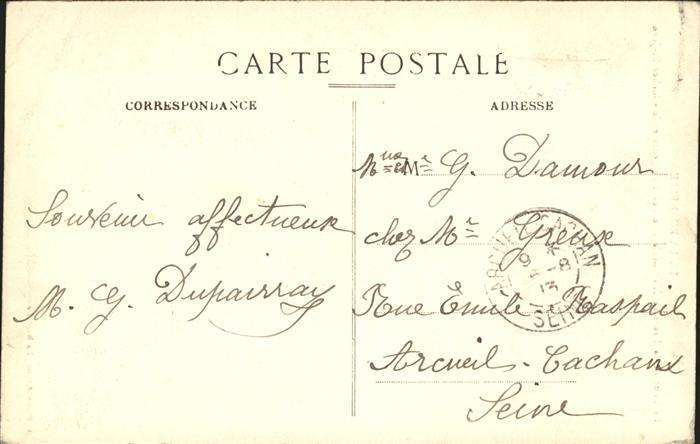 CARTE POSTALE
CORRESPONDANCE
Souvenir affectueux
M. G. Dupairray
ADRESSE
Mr G. Damour
chez Mr Greuse
Rue Emile Raspail
Arcueil-Cachan
Seine
ARCUEIL-CACHAN
9 * -8
13
SEINE